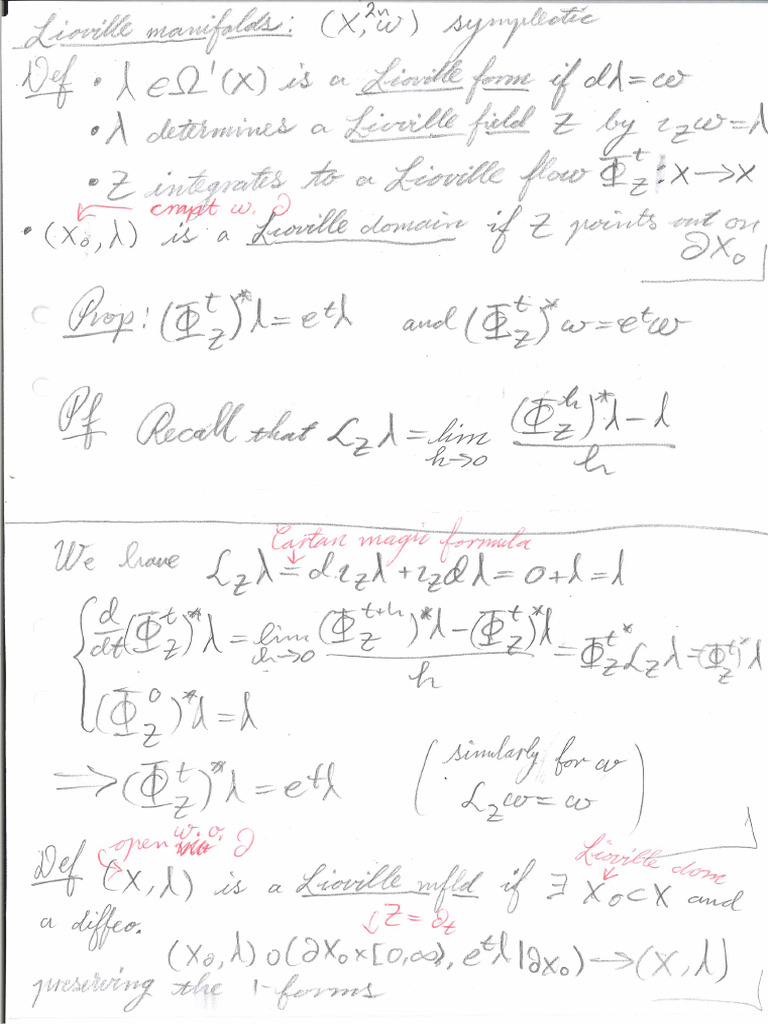 Lioville manifolds: (X,²ⁿ ω) symplectic
Def • λ ∈ Ω¹(X) is a Lioville form if dλ = ω
• λ determines a Lioville field Z by ι_Z ω = λ
• Z integrates to a Lioville flow Φ_Z^t : X → X
cmpt w. ∂
• (X₀, λ) is a Lioville domain if Z points out on
∂X₀
Prop: (Φ_Z^t)^* λ = e^t λ and (Φ_Z^t)^* ω = e^t ω
Pf Recall that L_Z λ = lim_{h→0} ((Φ_Z^h)^* λ − λ) / h
Cartan magic formula
We have L_Z λ = d ι_Z λ + ι_Z dλ = 0 + λ = λ
{ d/dt (Φ_Z^t)^* λ = lim_{h→0} ((Φ_Z^{t+h})^* λ − (Φ_Z^t)^* λ) / h = Φ_Z^{t*} L_Z λ = (Φ_Z^t)^* λ
(Φ_Z^0)^* λ = λ
⇒ (Φ_Z^t)^* λ = e^t λ ( similarly for ω
L_Z ω = ω )
open w.o. ∂ Lioville dom
Def (X, λ) is a Lioville mfld if ∃ X₀ ⊂ X and
a diffeo. Z = ∂_t
(X₀, λ) ∪ (∂X₀ × [0,∞), e^t λ|∂X₀) → (X, λ)
preserving the 1-forms